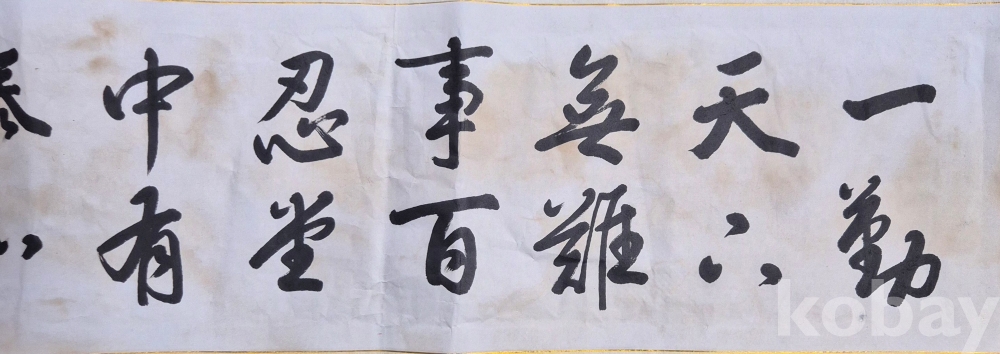 一勤
天下
無難
事百
忍堂
中有
泰
kobay